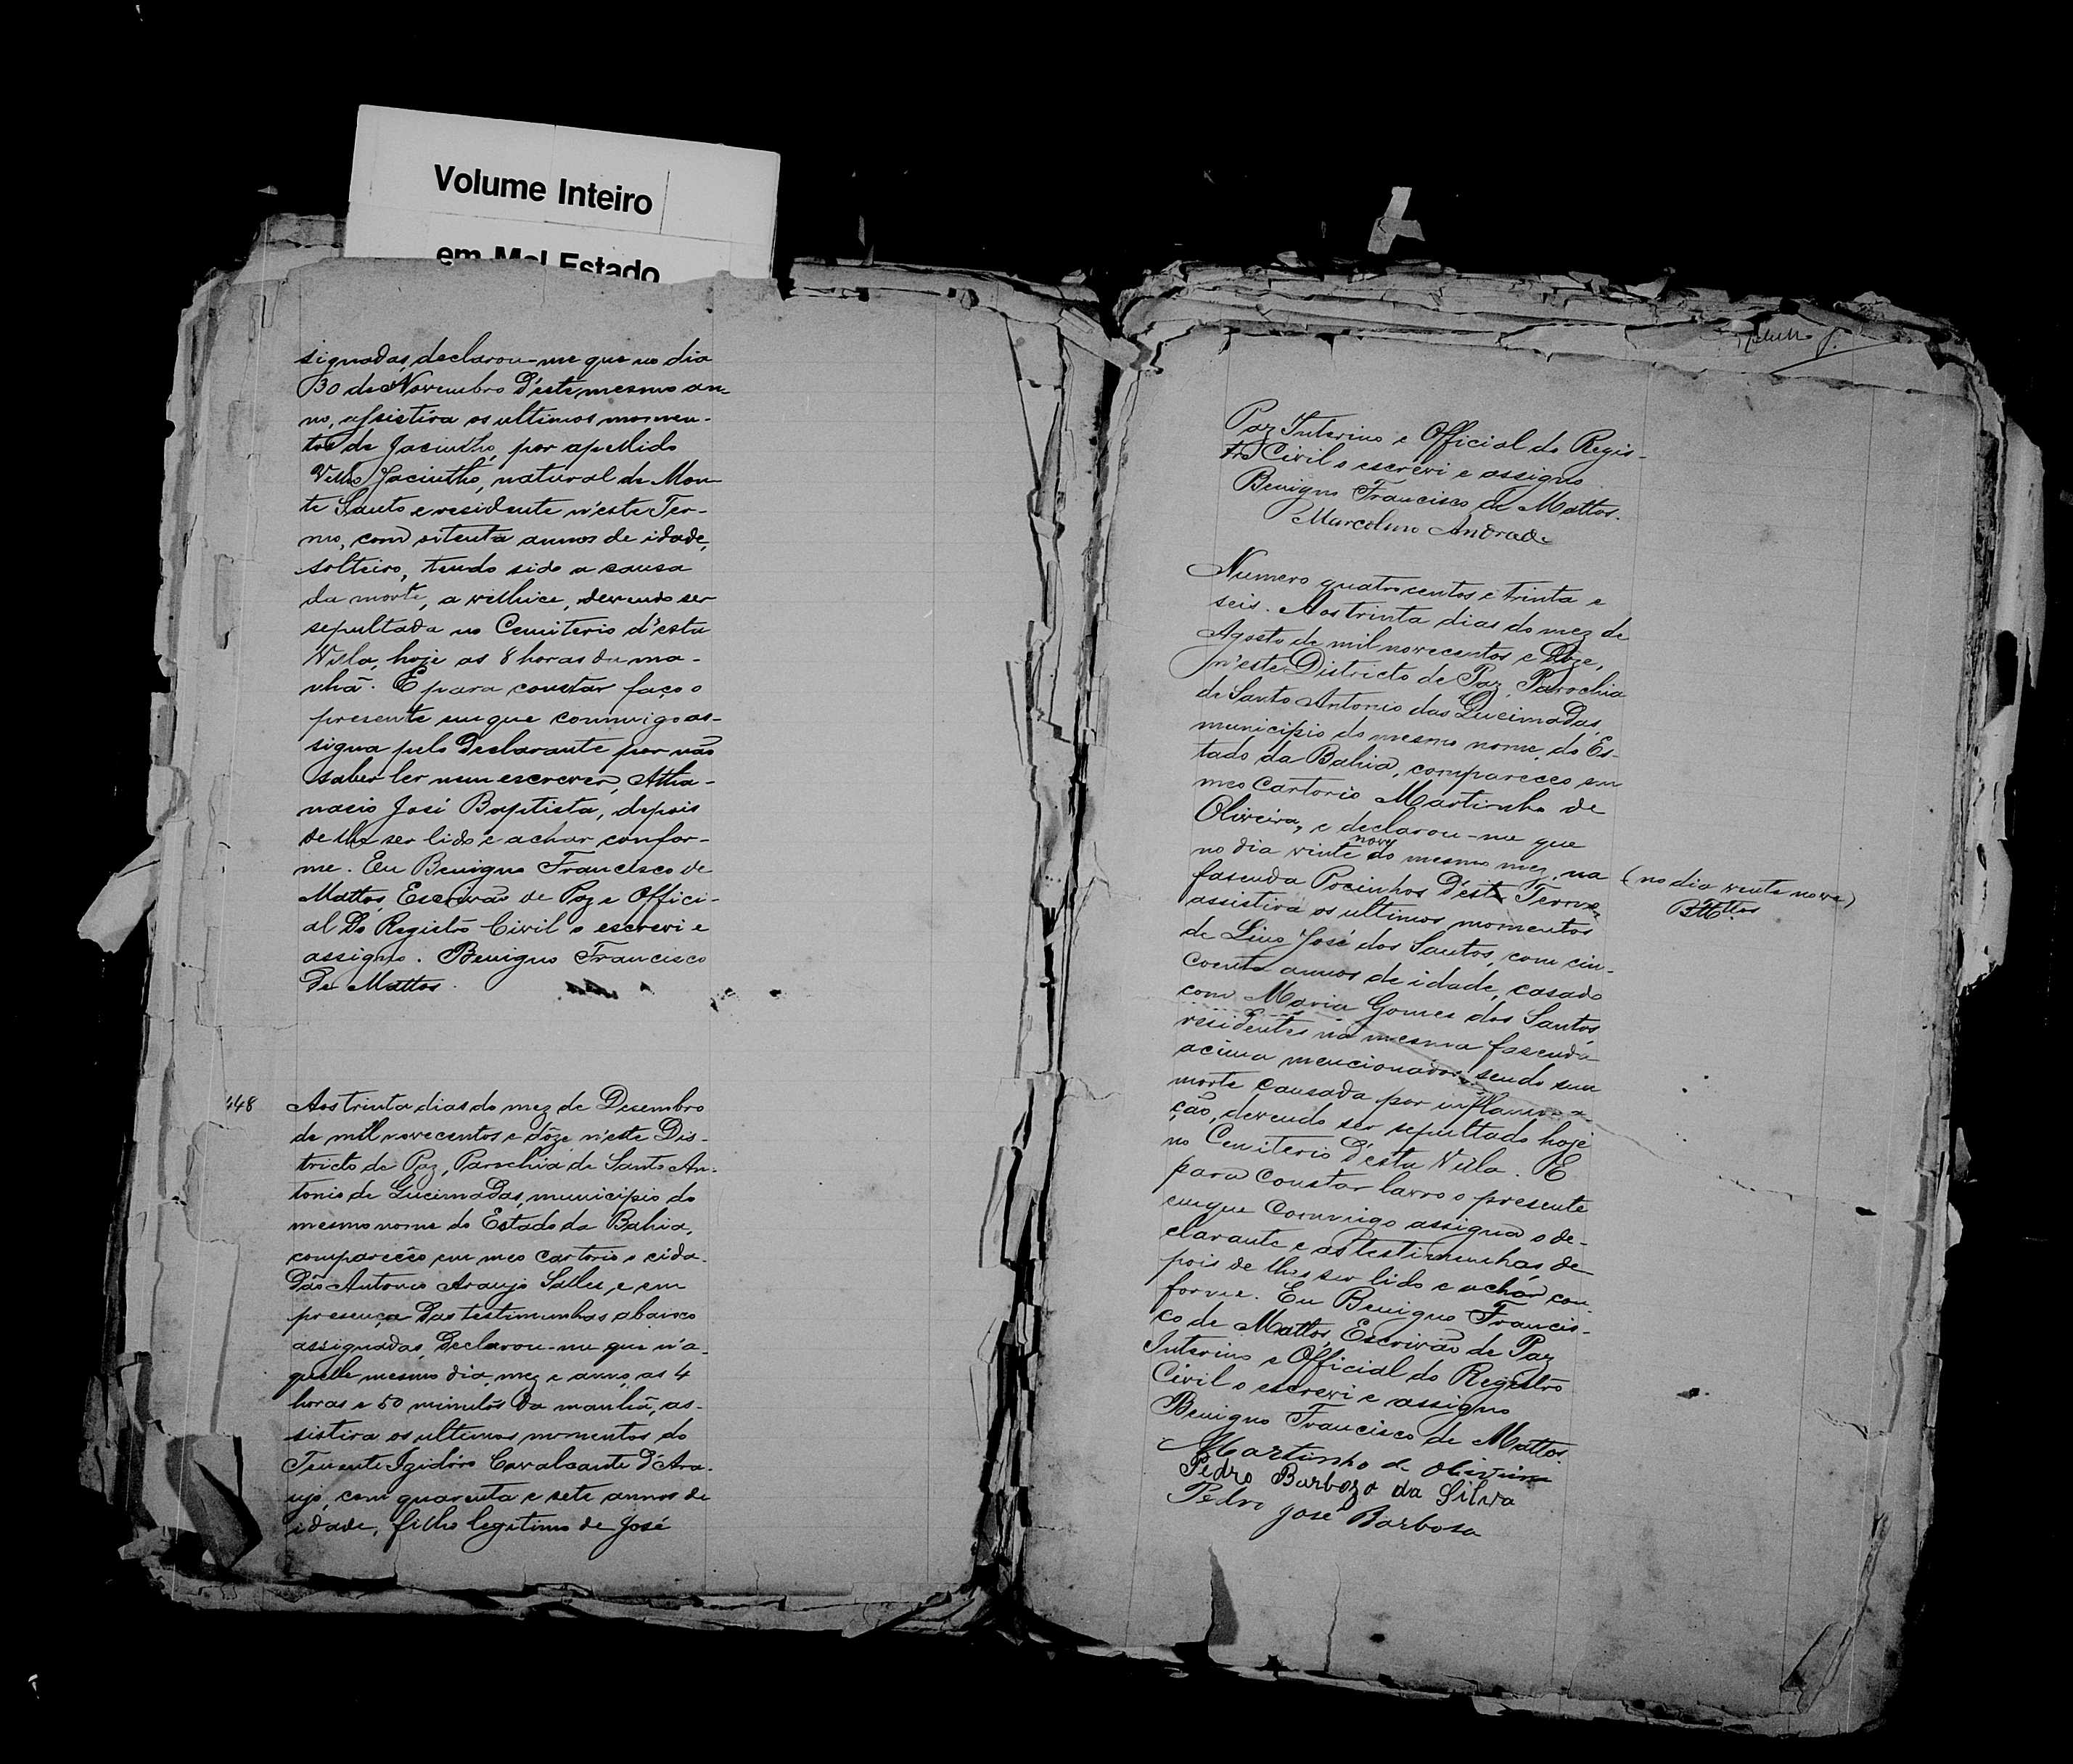 Volume Inteiro
em Mal Estado
signadas, declarou-me que no dia
30 de Novembro d'este mesmo an-
no, assistira os ultimos momen-
tos de Jacintho, por apellido
Velho Jacintho, natural de Mon
te Santo e residente n'este Ter-
mo, com setenta annos de idade,
solteiro, tendo sido a causa
da morte, a velhice, devendo ser
sepultada no Cemiterio d'esta
Villa, hoje as 8 horas da ma-
nhã. E para constar faço o
presente em que commigo as-
signa pelo Declarante por não
saber ler nem escrever, Atha-
nasio José Baptista, depois
de lhe ser lido e achar confor-
me. Eu Benigno Francisco de
Mattos, Escrivão de Paz e Offici-
al do Registro Civil o escrevi e
assigno. Benigno Francisco
de Mattos.
448 Aos trinta dias do mez de Desembro
de mil novecentos e dôze n'este Dis-
tricto de Paz, Parochia de Santo An-
tonio de Queimadas, municipio do
mesmo nome do Estado da Bahia,
compareceo em meo Cartorio o cida-
dão Antonio Araujo Salles, e em
presença das testimunhas abaixo
assignadas, Declarou-me que n'a-
quelle mesmo dia, mez e anno, as 4
horas e 50 minutos da manhã, as-
sistira os ultimos momentos do
Tenente Izidóro Cavalcante d'Ara-
ujo, com quarenta e sete annos de
idade, filho legitimo de José
Paz Interino e Official do Regis-
tro Civil o escrevi e assigno
Benigno Francisco de Mattos.
Marcolino Andrade
Numero quatrocentos e trinta e
seis. Aos trinta dias do mez de
Agosto de mil novecentos e Dôze,
n'este Districto de Paz, Parochia
de Santo Antonio das Queimadas,
municipio do mesmo nome, do Es-
tado da Bahia, compareceo em
meo Cartorio Martinho de
Oliveira, e declarou-me que
no dia vinte nove do mesmo mez, na
fasenda Pocinhos d'este Termo,
(no dia vinte nove)
BMattos
assistira os ultimos momentos
de Lino José dos Santos, com cin-
coenta annos de idade, casado
com Maria Gomes dos Santos,
residentes na mesma fasenda
acima mencionado, sendo sua
morte causada por inflamma
ção, devendo ser sepultado hoje
no Cemiterio d'esta Villa. E
para constar lavro o presente
em que commigo assigna o de-
clarante e as testimunhas de-
pois de lhes ser lido e achar con-
forme. Eu Benigno Francis-
co de Mattos, Escrivão de Paz
Interino e Official do Registro
Civil o escrevi e assigno
Benigno Francisco de Mattos.
Martinho de Oliveira
Pedro Barbozo da Silva
Pedro José Barbosa